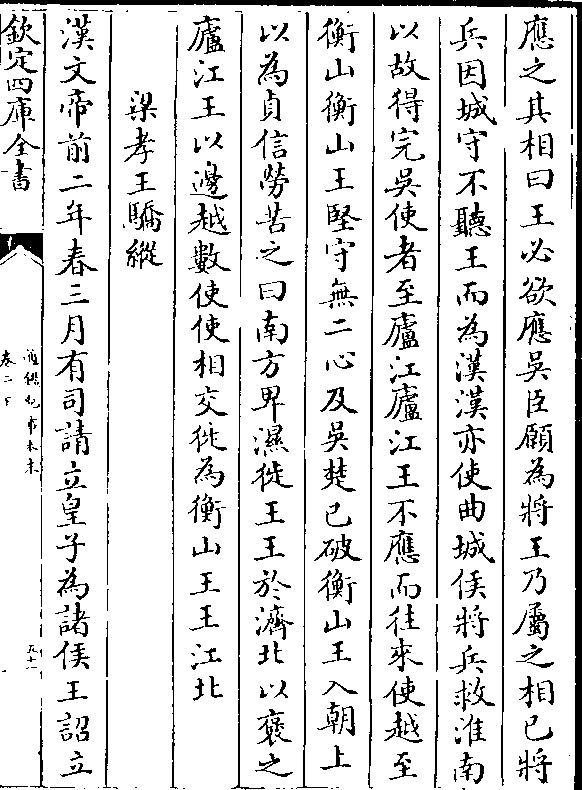 應之其相曰王必欲應吳臣願為將王乃屬之相已將
兵因城守不聽王而為漢漢亦使曲城侯將兵救淮南
以故得完吳使者至廬江廬江王不應而往來使越至
衡山衡山王堅守無二心及吳楚已破衡山王入朝上
以為貞信勞苦之曰南方卑濕徙王王於濟北以褒之
廬江王以邊越數使使相交徙為衡山王王江北
梁孝王驕縱
漢文帝前二年春三月有司請立皇子為諸侯王詔立
欽定四庫全書
通鑑紀事本末
卷二下
五十一